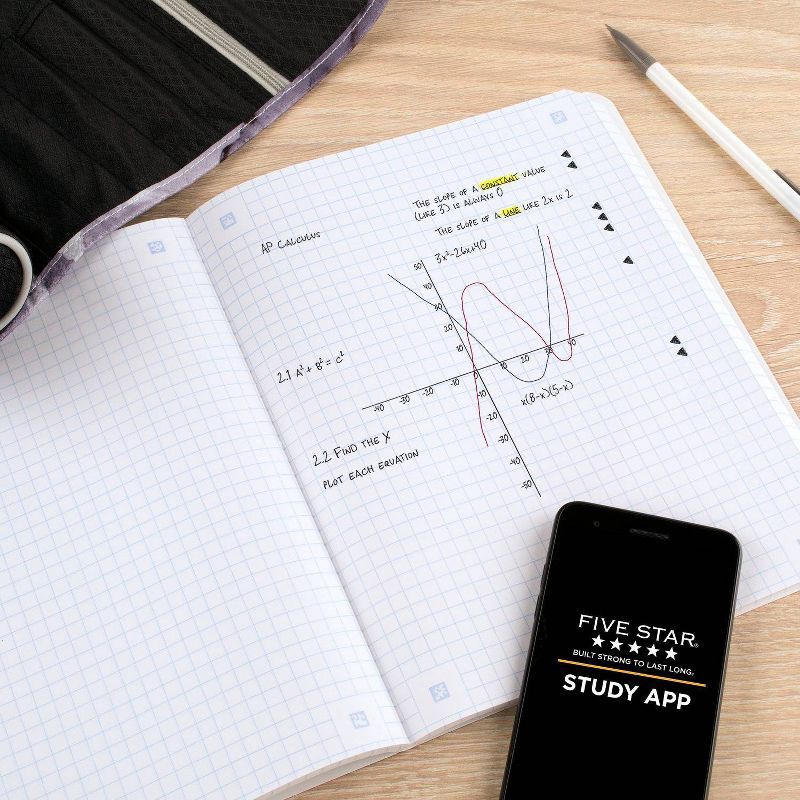 AP CALCULUS
THE SLOPE OF A CONSTANT VALUE
(LIKE 3) IS ALWAYS 0
THE SLOPE OF A LINE LIKE 2x IS 2
3x²-26x+40
50
40
30
20
10
-40 -30 -20 -10 0 10 20 30 40
-20
-30
-40
-50
x(8-x)(5-x)
2.1 A²+B²=C²
2.2 FIND THE X
PLOT EACH EQUATION
FIVE STAR®
BUILT STRONG TO LAST LONG.
STUDY APP